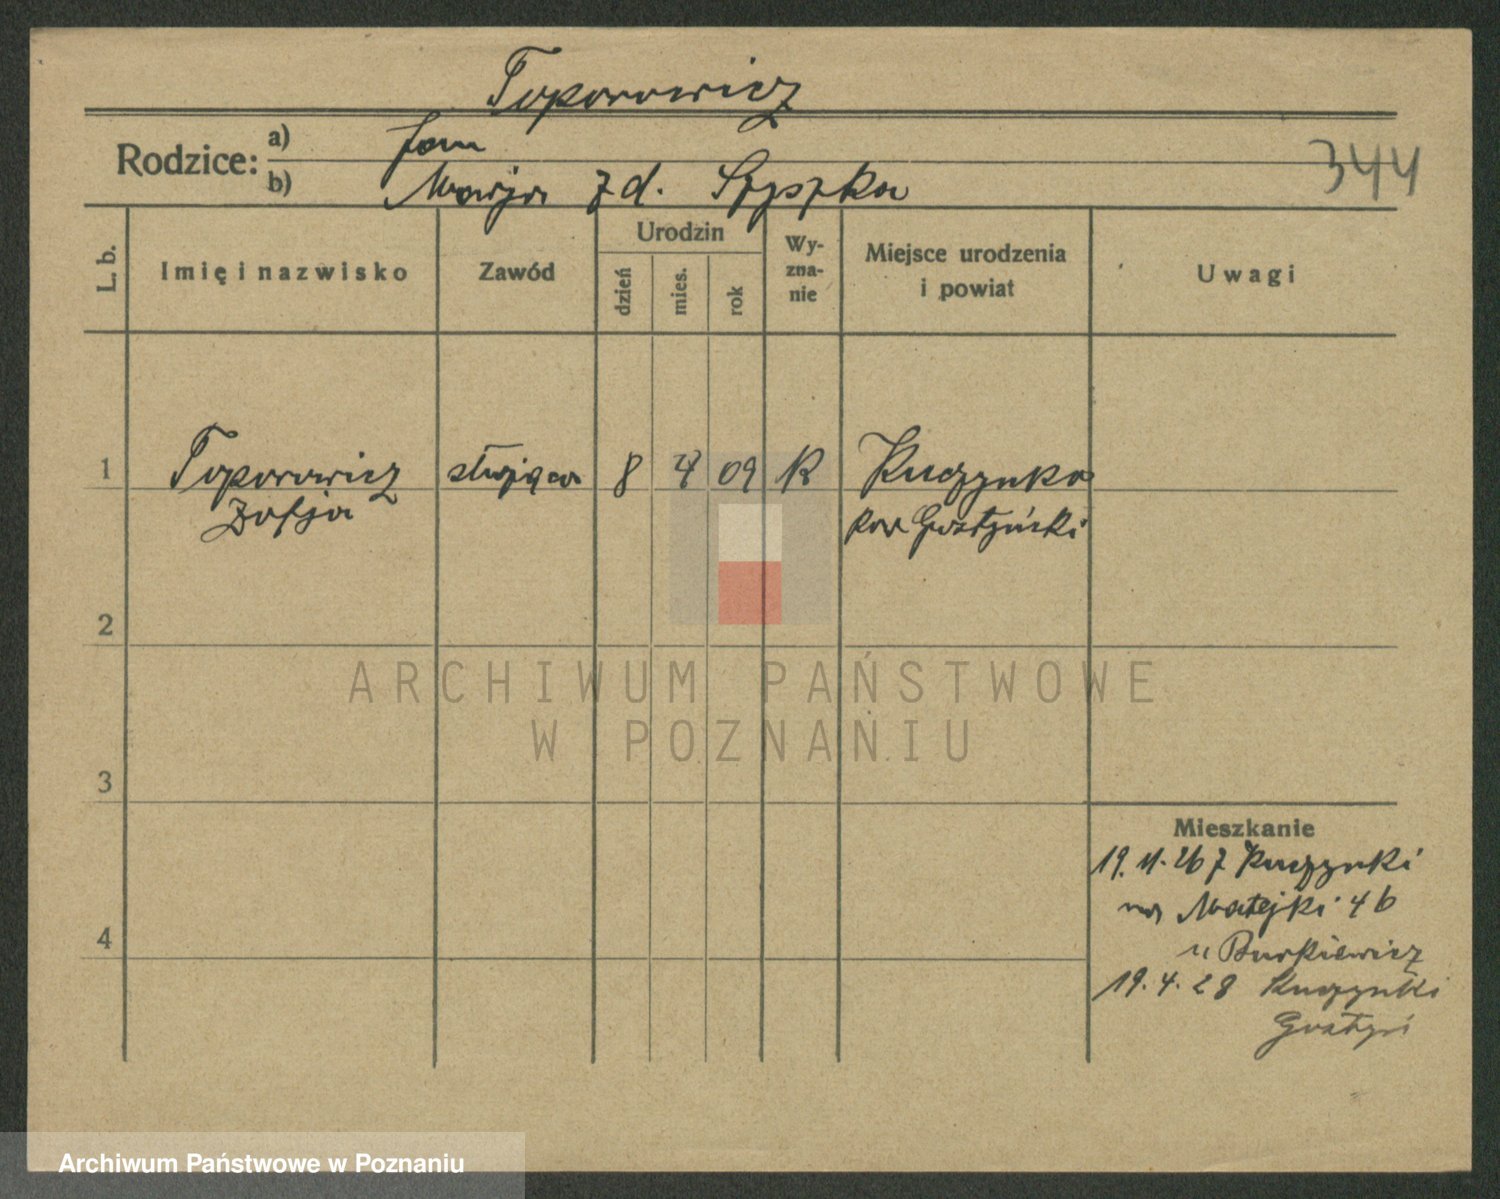 Toporowicz
Rodzice: a) Jan
b) Marja z d. Szyszka
344
L. b. Imię i nazwisko Zawód Urodzin dzień mies. rok Wy-zna-nie Miejsce urodzenia i powiat Uwagi
1 Toporowicz służąca 8 4 09 K Kuczynka
Zofja pow Gostyński
2
3
4
Mieszkanie
19. 11. 26 z Kuczynki
na Matejki 46
u Burkiewicz
19. 4. 28 Kuczynki
Gostyń
ARCHIWUM PAŃSTWOWE
W POZNANIU
Archiwum Państwowe w Poznaniu